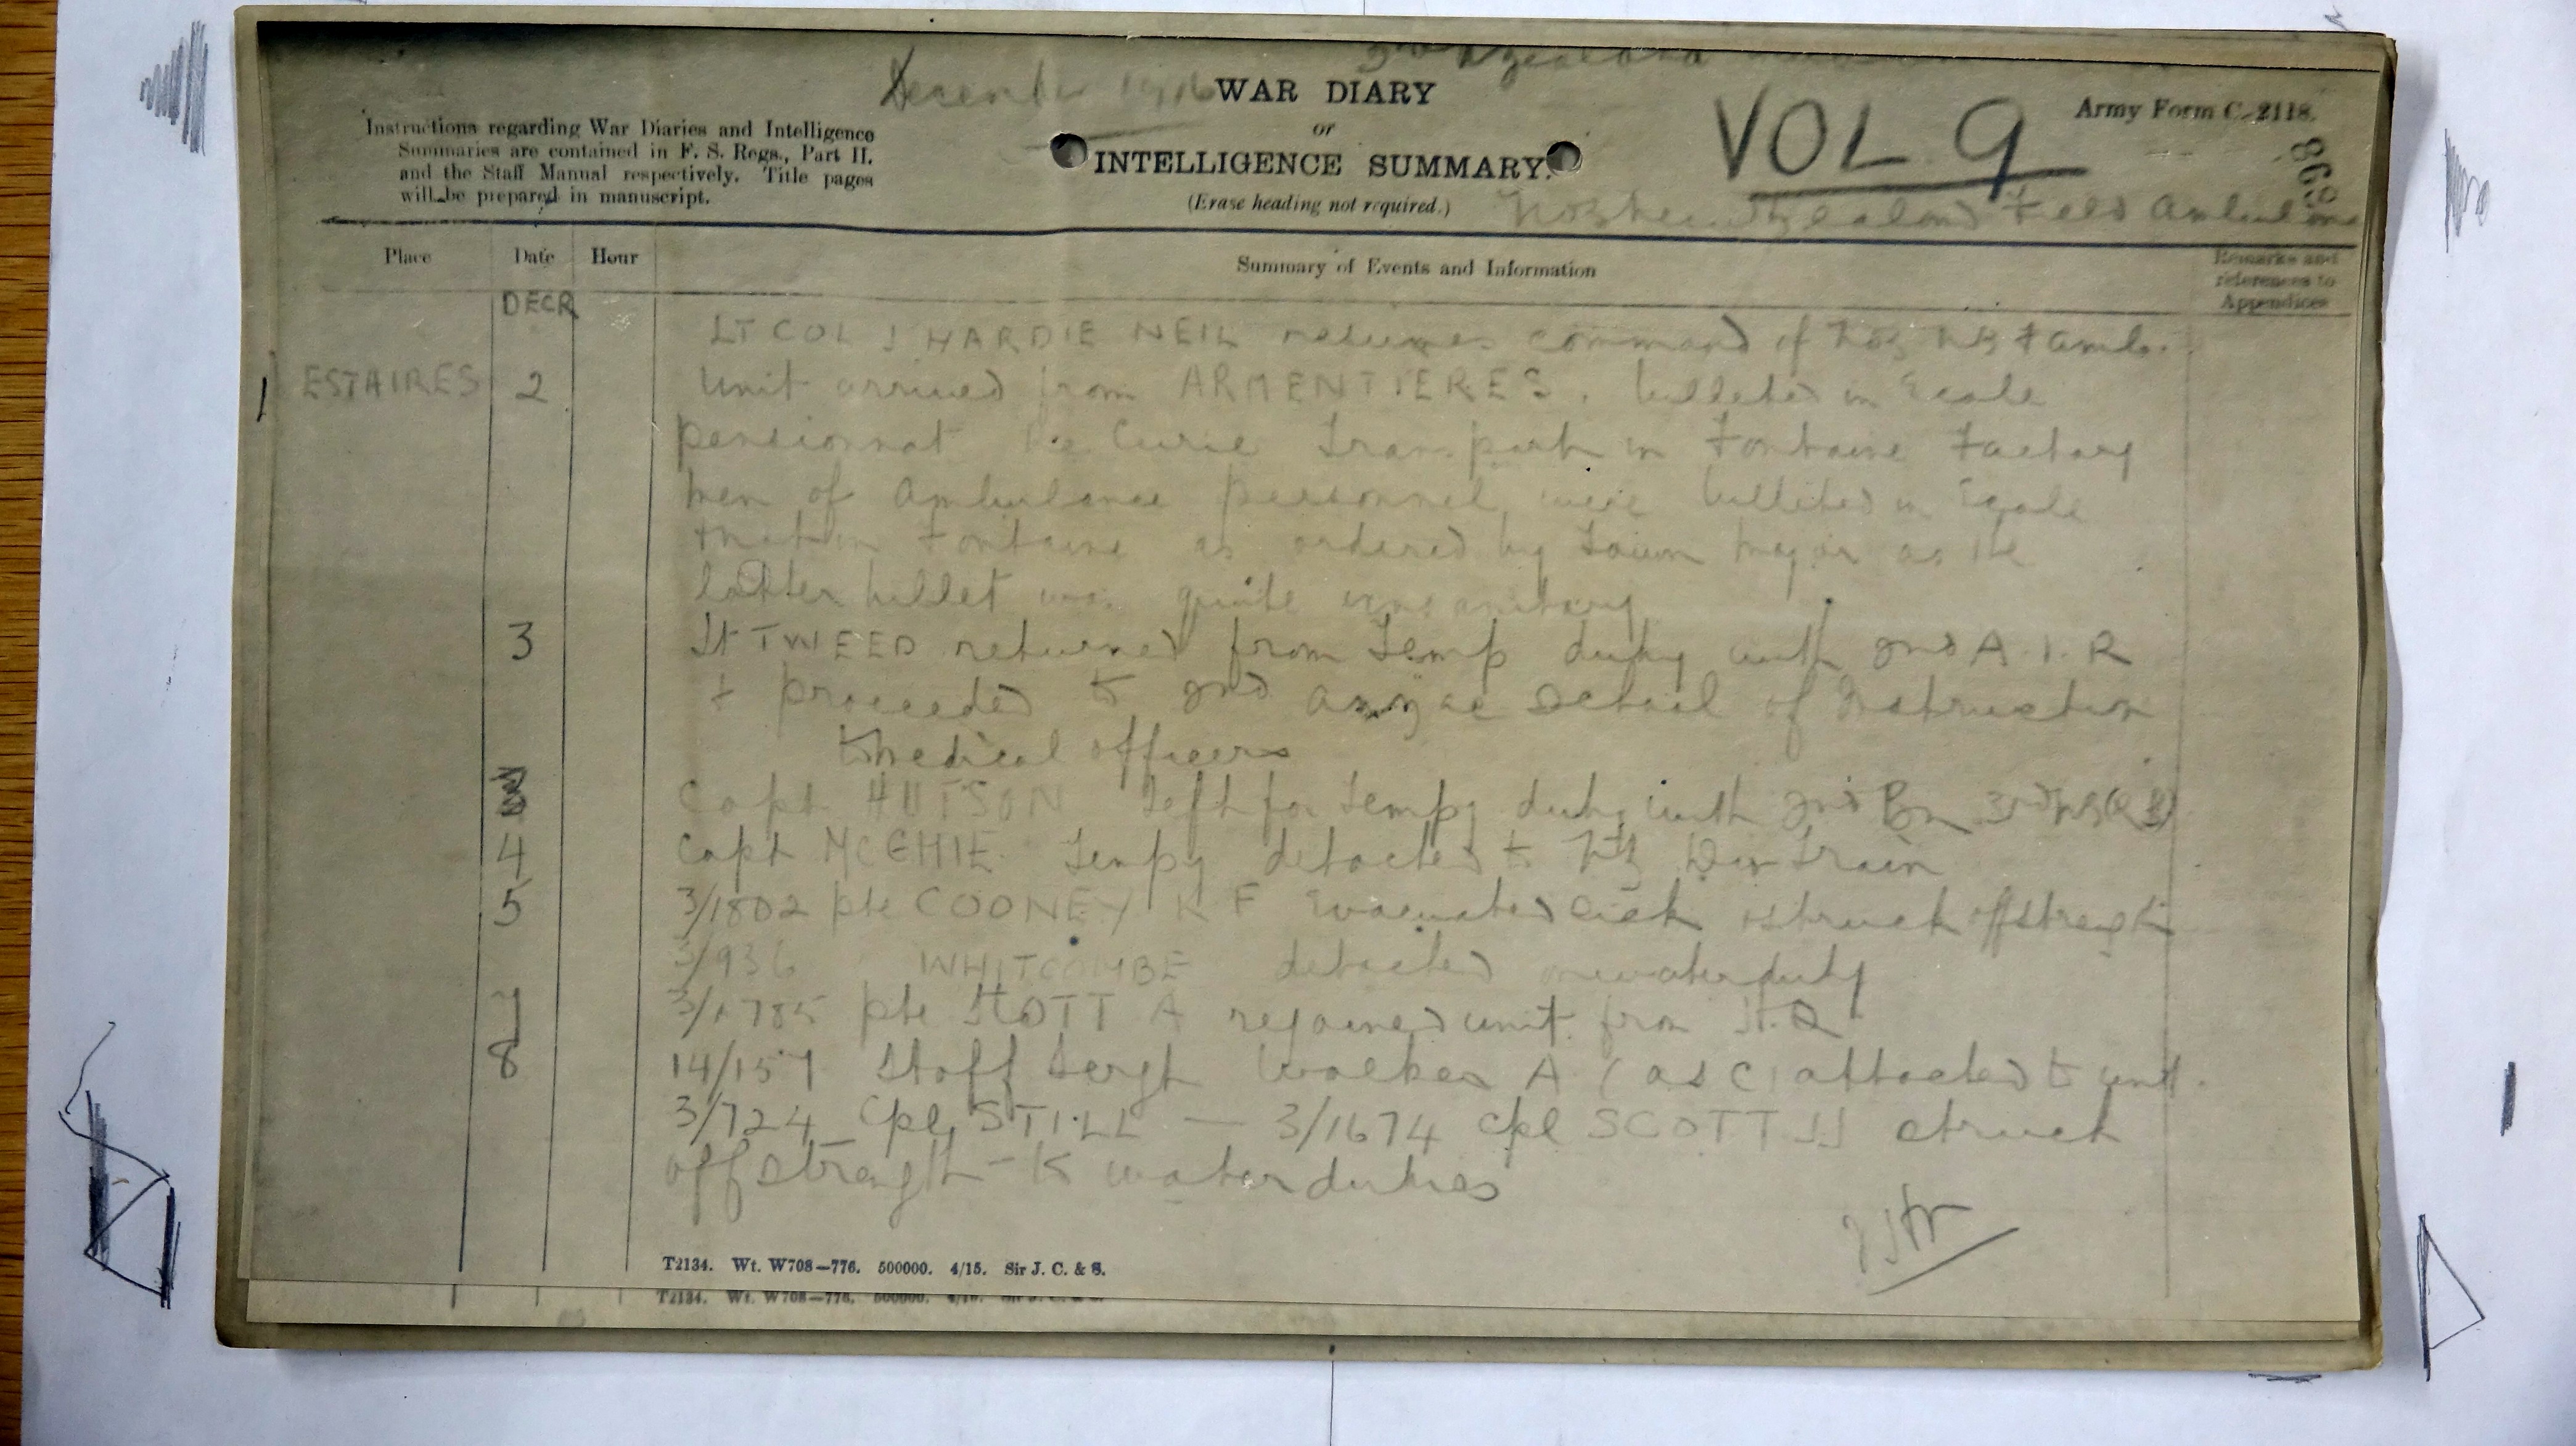 December 1916
WAR DIARY
or
INTELLIGENCE SUMMARY.
(Erase heading not required.)
Instructions regarding War Diaries and Intelligence
Summaries are contained in F. S. Regs., Part II.
and the Staff Manual respectively. Title pages
will be prepared in manuscript.
VOL 9
Army Form C. 2118.
898
No 3 New Zealand Field Ambulance
Place Date Hour Summary of Events and Information Remarks and
references to
Appendices
DECR
LT COL J HARDIE NEIL resumes command of No 3 NZ F Amb.
1 ESTAIRES 2 Unit arrived from ARMENTIERES. billeted in Ecole
pensionnat Curie Transport in Fontaine Factory
Men of Ambulance personnel were billeted in Ecole
in Fontaine as ordered by Town Major as the
latter billet was quite unsanitary
3 Lt TWEED returned from Temp duty with 2nd A.I.R
+ proceeded to 2nd Anzac School of Instruction
Medical officers
Capt HUTSON left for tempy duty with 2nd Bn 3rd NZ(RB)
4 Capt MCGHIE Tempy detached to NZ Div Train
5 3/1802 pte COONEY K F Evacuated sick + struck off strength
3/936 WHITCOMBE detached on water duty
7 3/1785 pte STOTT A rejoined unit from H.Q
8 14/157 Staff Sergt Walker A (ASC) attached to unit.
3/724 Cpl STILL — 3/1674 Cpl SCOTT JJ struck
off strength - to water duties
JHN
T2134. Wt. W708—776. 500000. 4/15. Sir J. C. & S.
T2134. Wt. W708—776. 500000. 4/15. Sir J. C. & S.